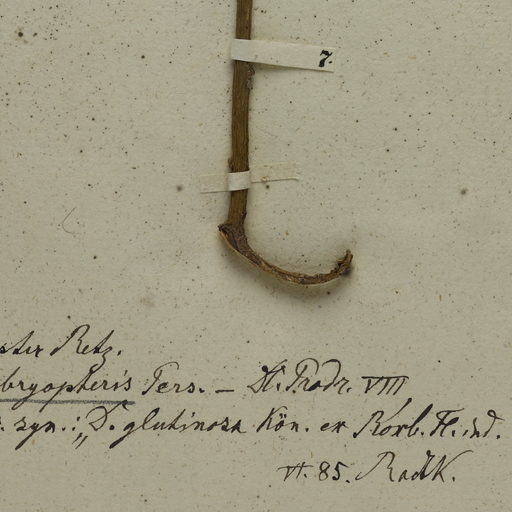 7.
Retz.
bryopteris Pers. — Prodr. VIII
syn.: „D. glutinosa Kön. ex Roxb. Fl. ind.
VI. 85. Radlk.